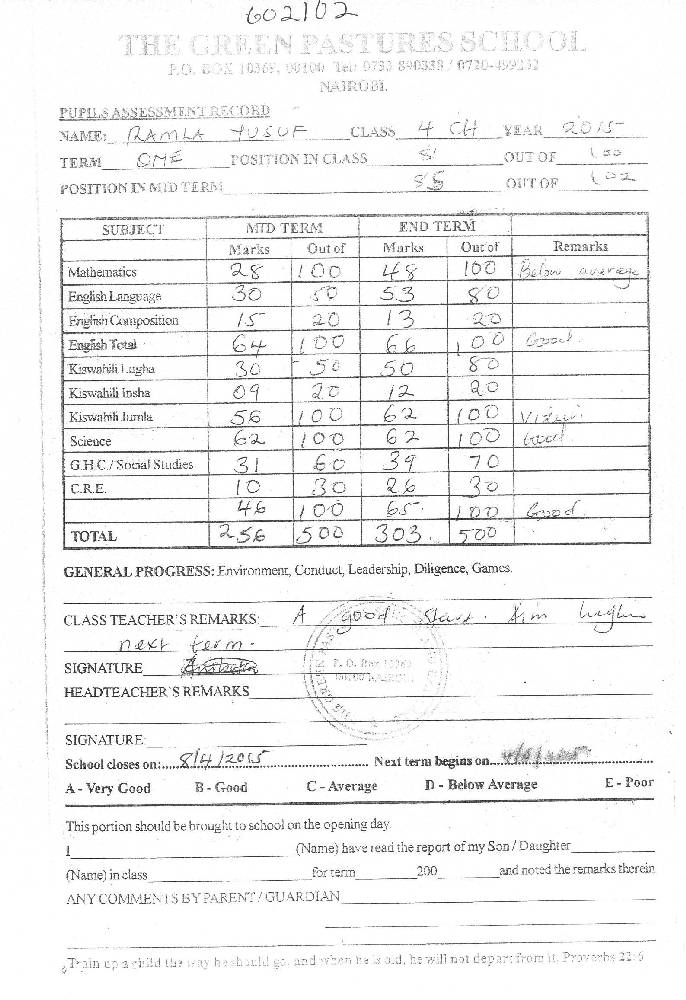 602102
THE GREEN PASTURES SCHOOL
P.O. BOX 10369, 00100 Tel: 0733 890338 / 0720-499232
NAIROBI.
PUPILS ASSESSMENT RECORD
NAME: RAMLA YUSUF CLASS 4 CH YEAR 2015
TERM ONE POSITION IN CLASS 81 OUT OF 100
POSITION IN MID TERM 85 OUT OF 102
SUBJECT MID TERM END TERM
Marks Out of Marks Out of Remarks
Mathematics 28 100 48 100 Below average
English Language 30 50 53 80
English Composition 15 20 13 20
English Total 64 100 66 100 Good
Kiswahili Lugha 30 50 50 80
Kiswahili Insha 09 20 12 20
Kiswahili Jumla 56 100 62 100 Vizuri
Science 62 100 62 100 Good
G.H.C./ Social Studies 31 60 39 70
C.R.E. 10 30 26 30
46 100 65 100 Good
TOTAL 256 500 303 500
GENERAL PROGRESS: Environment, Conduct, Leadership, Diligence, Games.
CLASS TEACHER'S REMARKS: A good start. Aim higher
next term.
SIGNATURE
HEADTEACHER'S REMARKS
SIGNATURE:
School closes on: 8/4/2015 Next term begins on
A - Very Good B - Good C - Average D - Below Average E - Poor
This portion should be brought to school on the opening day
I (Name) have read the report of my Son / Daughter
(Name) in class for term 200 and noted the remarks therein
ANY COMMENTS BY PARENT / GUARDIAN
Train up a child the way he should go, and when he is old, he will not depart from it. Proverbs 22:6